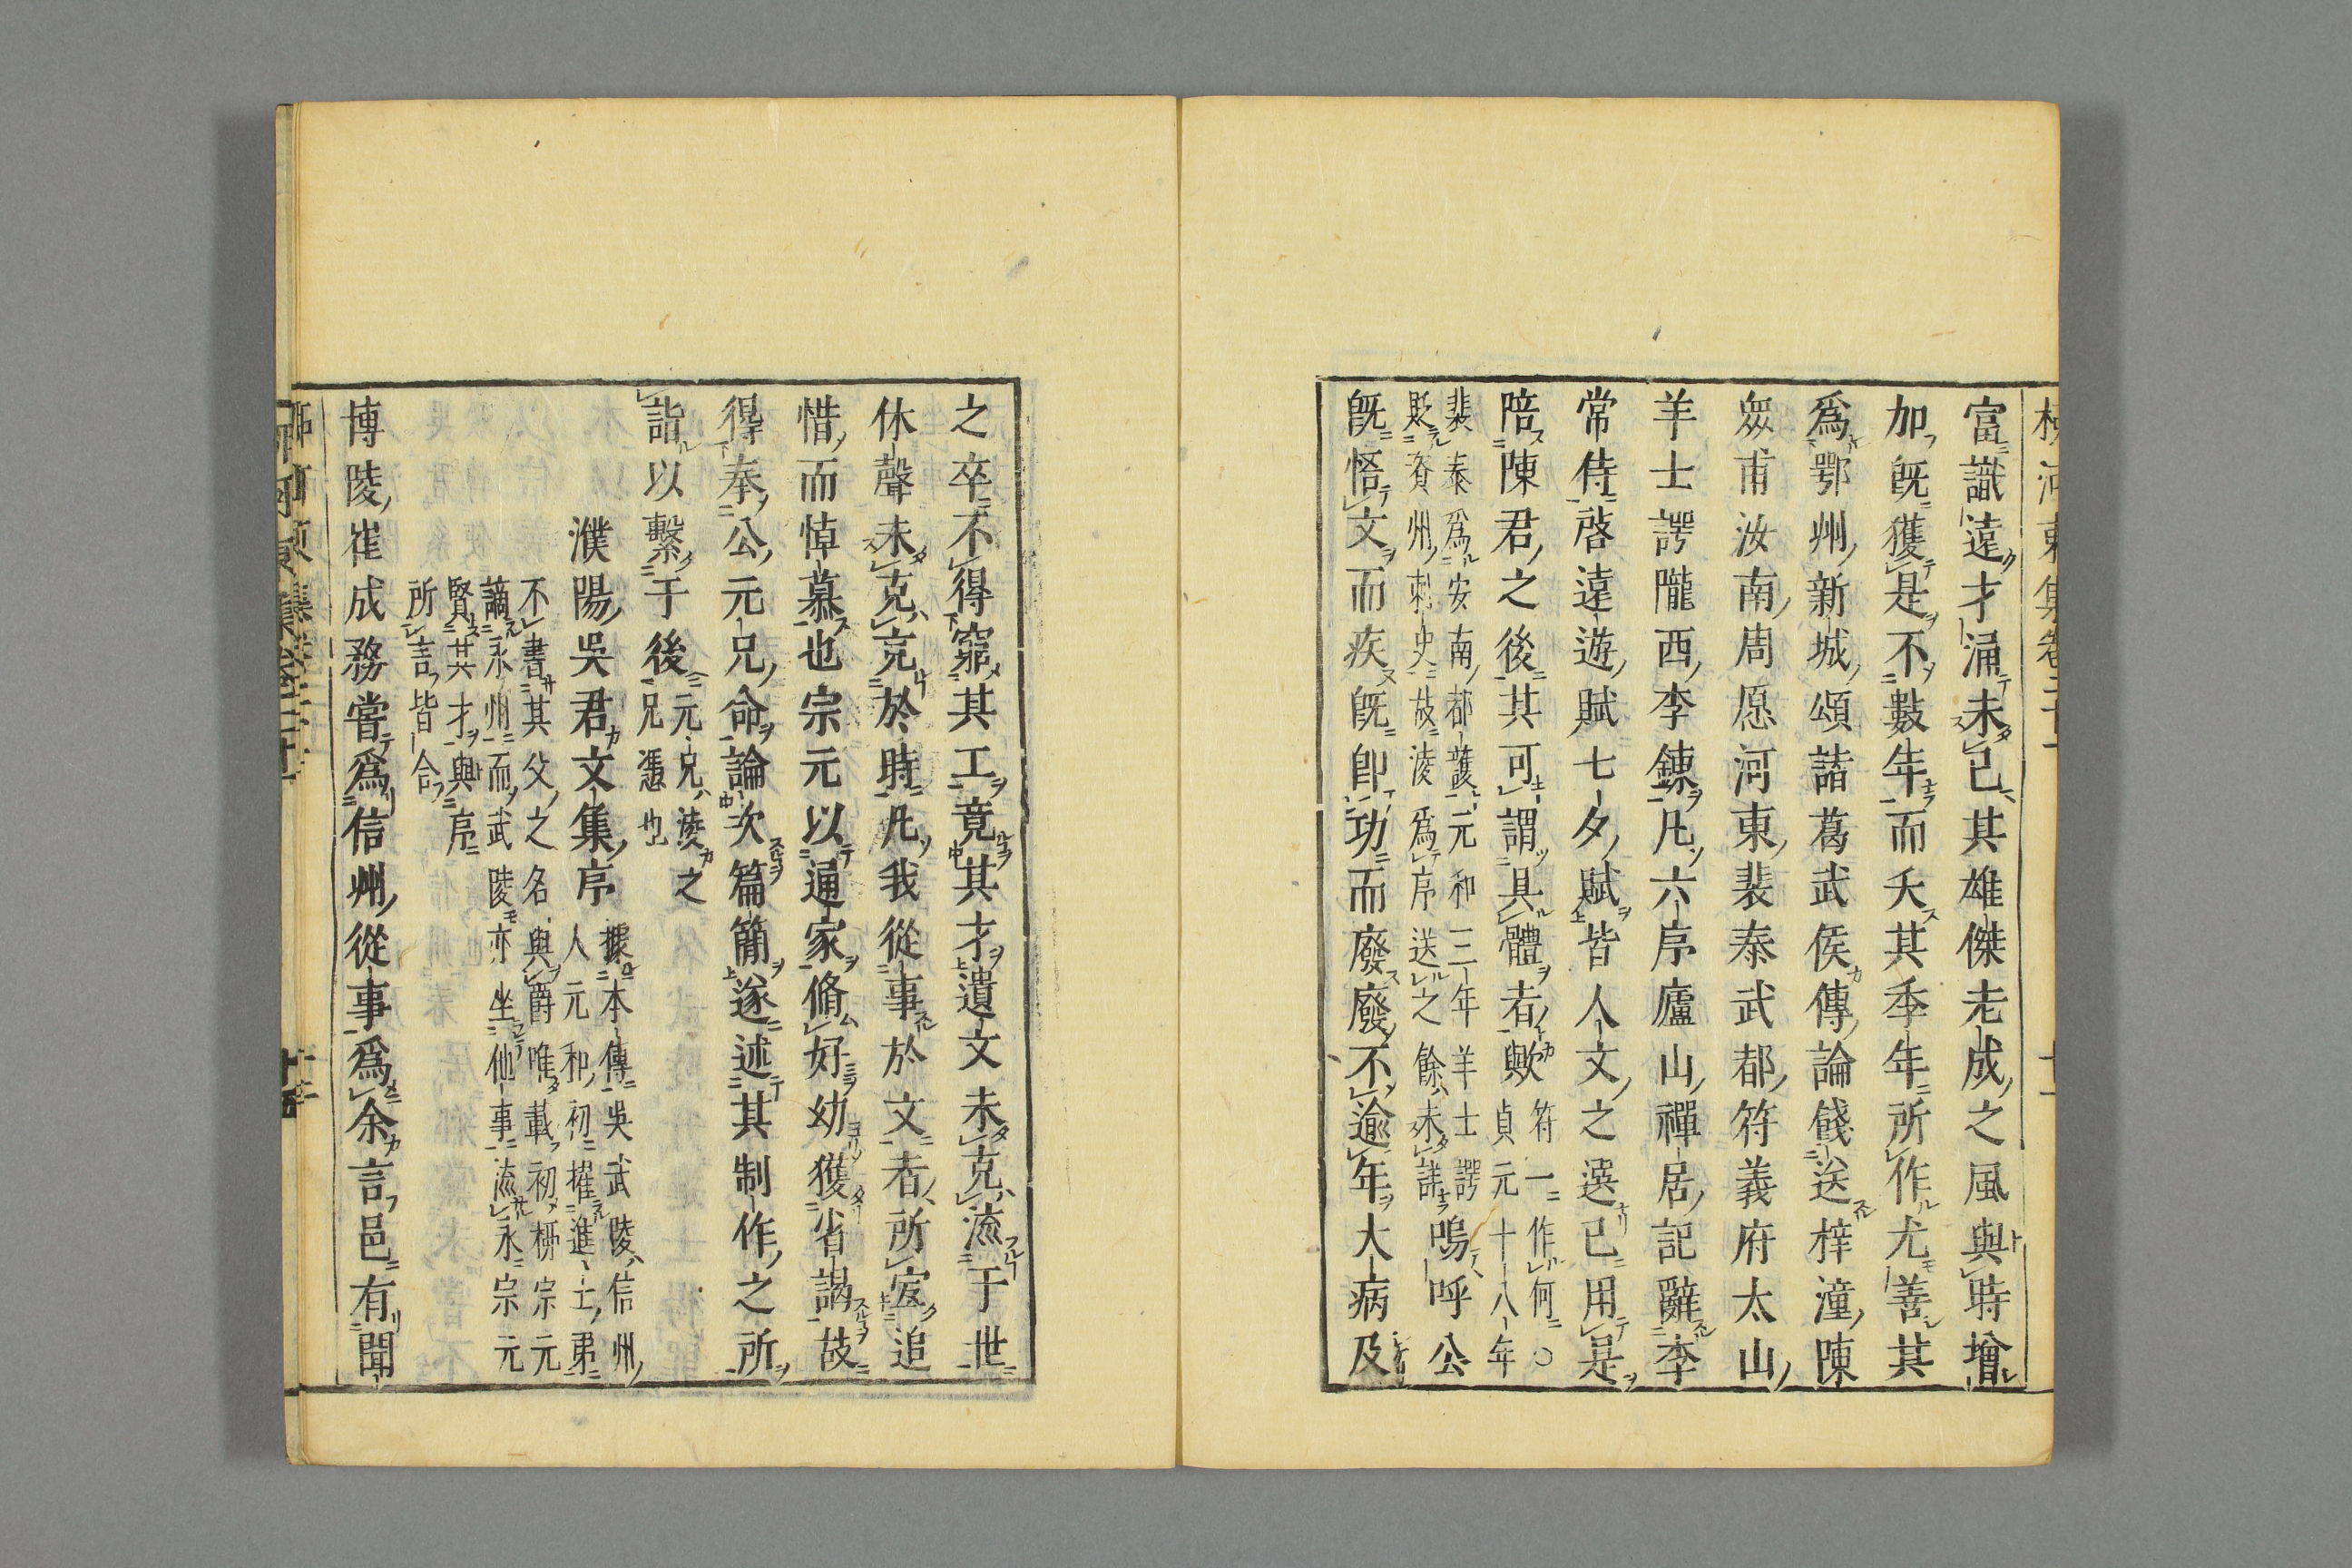 富識遠才涌未已其雄傑老成之風與時增
加既獲是不數年而夭其季年所作尤善其
爲鄂州新城頌諸葛武侯傳論餞送梓潼陳
衆甫汝南周愿河東裴泰武都符義府太山
羊士諤隴西李鍊凡六序廬山禪居記辭李
常侍啓遠遊賦七夕賦皆人文之選已用是
陪陳君之後其可謂具體者歟
符一作何〇
貞元十八年
裴泰爲安南都護元和三年羊士諤
貶資州刺史故淩爲序送之餘未詳
嗚呼公
既悟文而疾既卽功而廢廢不逾年大病及
之卒不得窮其工竟其才遺文未克流于世
休聲未克充於時凡我從事於文者所宜追
惜而悼慕也宗元以通家脩好幼獲省謁故
得奉公元兄命論次篇簡遂述其制作之所
詣以繫于後
元兄淩之
兄憑也
濮陽吳君文集序
據本傳吳武陵信州
人元和初擢進士第
不書其父之名與爵唯載初柳宗元
謫永州而武陵亦坐他事流永宗元
賢其才與序
所言皆合
博陵崔成務嘗爲信州從事爲余言邑有聞